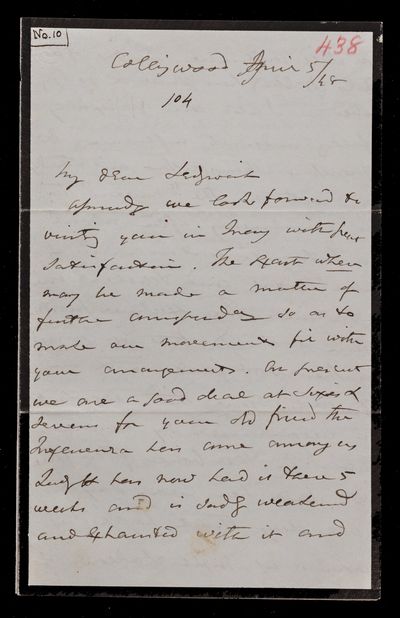 No. 10
438
Collingwood April 5/48
104
My dear Sedgwick
assuredly we look forward to
visiting you in May with great
satisfaction. The exact when
may be made a matter of
future so as to
make our movements fit with
your arrangements. At present
we are a good deal at sixes &
sevens for your old friend the
Influenza has come among us
Lady H has now had it these 5
weeks and is sadly weakened
and exhausted with it and